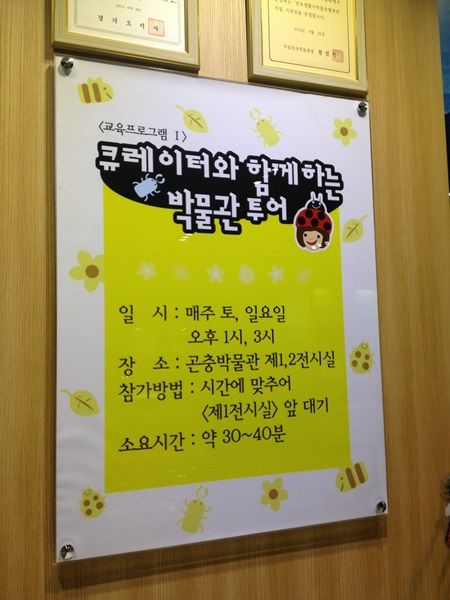 경 기 도 지 사
〈교육프로그램 I〉
큐레이터와 함께하는
박물관 투어
일 시 : 매주 토, 일요일
오후 1시, 3시
장 소 : 곤충박물관 제1,2전시실
참가방법 : 시간에 맞추어
〈제1전시실〉 앞 대기
소요시간 : 약 30~40분